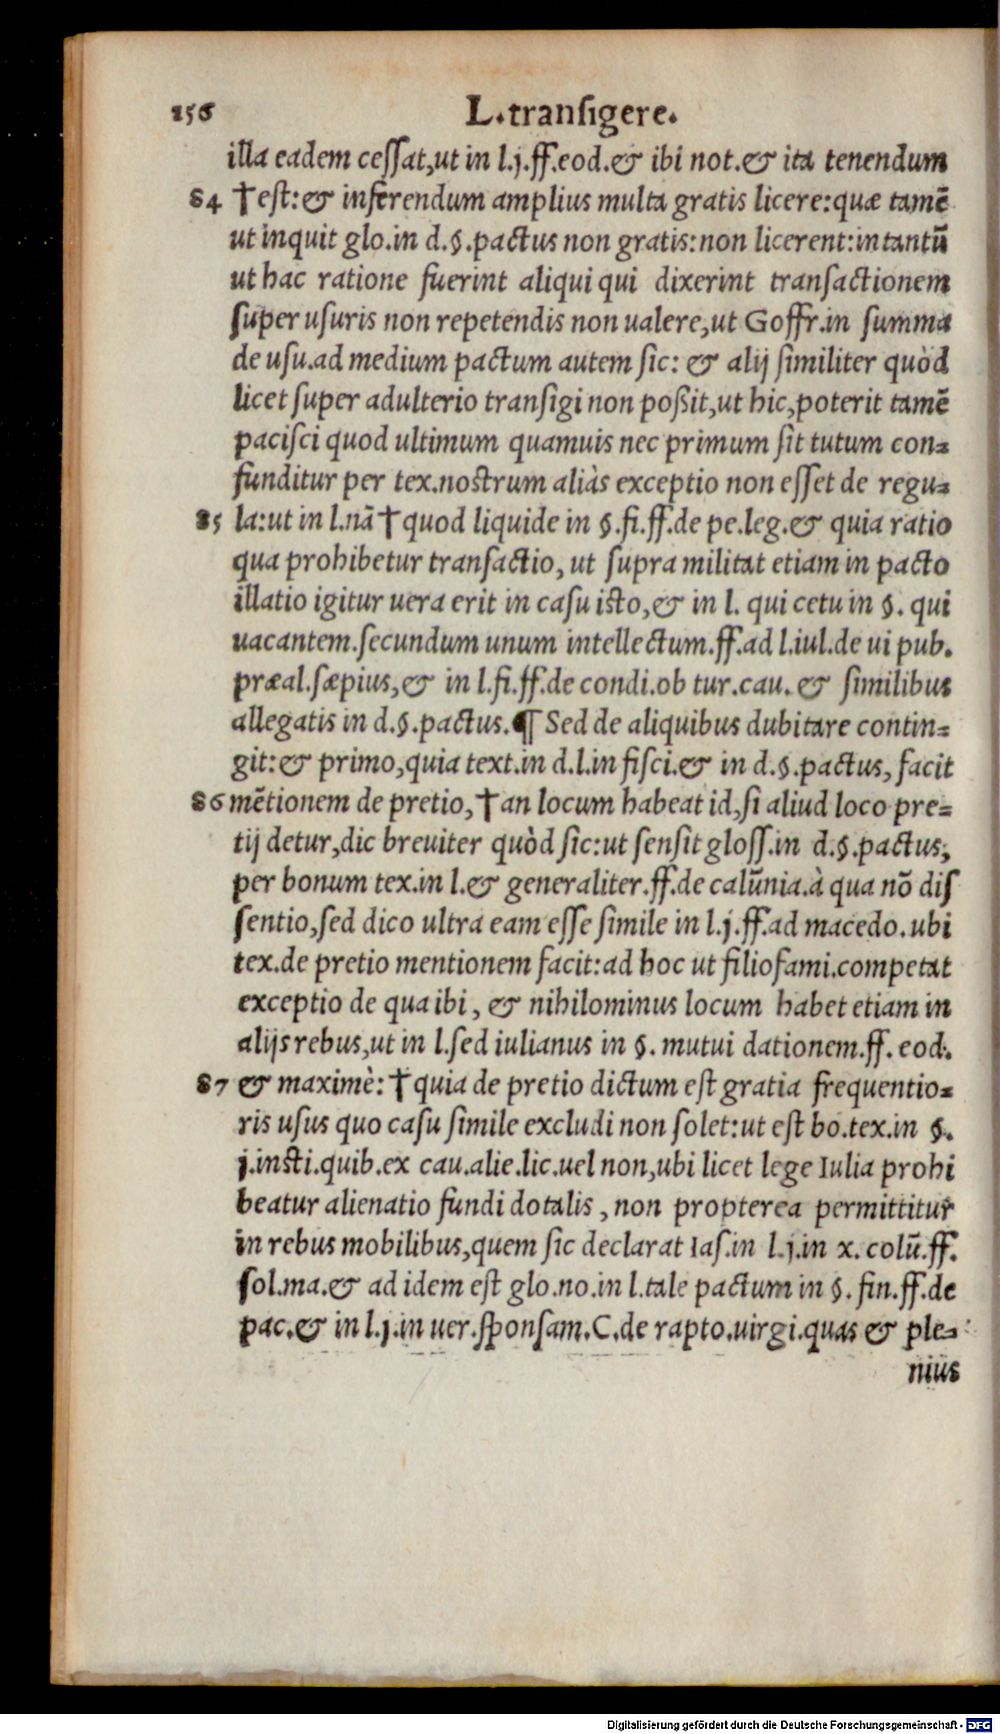 156 L.transigere.
illa eadem cessat,ut in l.j.ff.eod.& ibi not.& ita tenendum
84 †est:& inferendum amplius multa gratis licere:quæ tamē
ut inquit glo.in d.§.pactus non gratis:non licerent:in tantū
ut hac ratione fuerint aliqui qui dixerint transactionem
super usuris non repetendis non ualere,ut Goffr.in summa
de usu.ad medium pactum autem sic: & alij similiter quòd
licet super adulterio transigi non poßit,ut hic,poterit tamē
pacisci quod ultimum quamuis nec primum sit tutum con=
funditur per tex.nostrum aliàs exceptio non esset de regu=
85 la:ut in l.nā†quod liquide in §.fi.ff.de pe.leg.& quia ratio
qua prohibetur transactio, ut supra militat etiam in pacto
illatio igitur uera erit in casu isto,& in l. qui cetu in §. qui
uacantem.secundum unum intellectum.ff.ad l.iul.de ui pub.
præal.sæpius,& in l.fi.ff.de condi.ob tur.cau.& similibus
allegatis in d.§.pactus.¶ Sed de aliquibus dubitare contin=
git:& primo,quia text.in d.l.in fisci.& in d.§.pactus, facit
86 mētionem de pretio,†an locum habeat id,si aliud loco pre=
tij detur,dic breuiter quòd sic:ut sensit gloss.in d.§.pactus,
per bonum tex.in l.& generaliter.ff.de calūnia.à qua nō dis
sentio,sed dico ultra eam esse simile in l.j.ff.ad macedo.ubi
tex.de pretio mentionem facit:ad hoc ut filiofami.competat
exceptio de qua ibi, & nihilominus locum habet etiam in
alijs rebus,ut in l.sed iulianus in §. mutui dationem.ff. eod.
87 & maximè:†quia de pretio dictum est gratia frequentio=
ris usus quo casu simile excludi non solet:ut est bo.tex.in §.
j.insti.quib.ex cau.alie.lic.uel non,ubi licet lege Iulia prohi
beatur alienatio fundi dotalis, non propterea permittitur
in rebus mobilibus,quem sic declarat Ias.in l.j.in x. colū.ff.
sol.ma.& ad idem est glo.no.in l.tale pactum in §. fin.ff.de
pac.& in l.j.in uer.sponsam.C.de rapto.uirgi.quas & ple=
nius
Digitalisierung gefördert durch die Deutsche Forschungsgemeinschaft - DFG